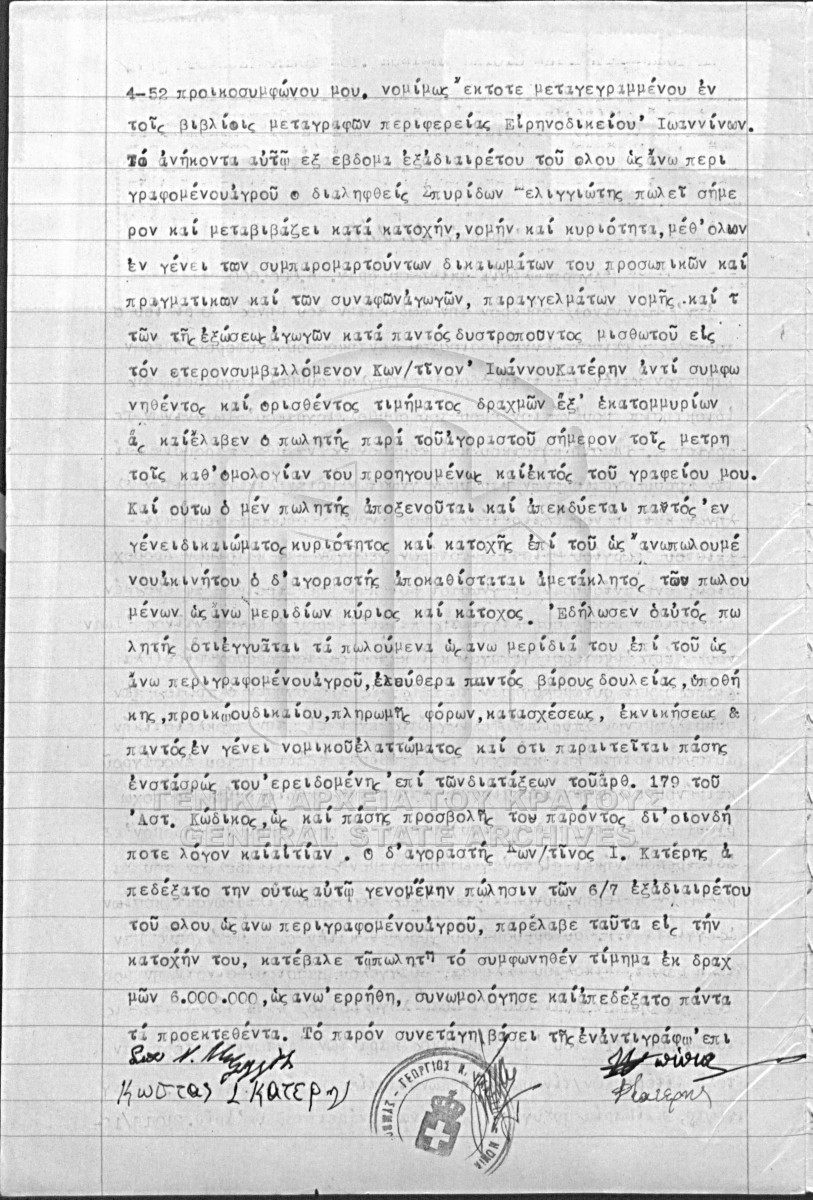 4-52 προικοσυμφώνου μου. νομίμως ἔκτοτε μεταγεγραμμένου ἐν
τοῖς βιβλίοις μεταγραφῶν περιφερείας Εἰρηνοδικείου Ἰωαννίνων.
Τά ἀνήκοντα αὐτῷ εξ εβδομα ἐξἀδιαιρέτου τοῦ ολου ὡς ἄνω περι
γραφομένουἀγροῦ ο διαληφθείς Σπυρίδων Μελιγγιώτης πωλεῖ σήμε
ρον καί μεταβιβάζει κατά κατοχήν, νομήν καί κυριότητα, μέθ'ολων
ἐν γένει των συμπαρομαρτούντων δικαιωμάτων του προσωπικῶν καί
πραγματικων καί τῶν συναφῶνἀγωγῶν, παραγγελμάτων νομῆς καί τ
τῶν τῆς ἐξώσεως ἀγωγῶν κατά παντός δυστροποῦντος μισθωτοῦ εἰς
τόν ετερονσυμβαλλόμενον Κων/τῖνον Ἰωάννου Κατέρην ἀντί συμφω
νηθέντος καί ορισθέντος τιμήματος δραχμῶν ἕξ ἑκατομμυρίων
ἅς καίἔλαβεν ο πωλητής παρά τοῦἀγοραστοῦ σήμερον τοῖς μετρη
τοῖς καθ'ομολογίαν του προηγουμένως καίἐκτός τοῦ γραφείου μου.
Καί ουτω ὁ μέν πωλητής ἀποξενοῦται καί ἀπεκδύεται παντός ἐν
γένειδικαιώματος κυριότητος καί κατοχῆς ἐπί τοῦ ὡς ἄνωπωλουμέ
νουἀκινήτου ὁ δ'αγοραστής ἀποκαθίσταται ἀμετάκλητος τῶν πωλου
μένων ὡς ἄνω μεριδίων κύριος καί κάτοχος. Ἐδήλωσεν ὁαὐτός πω
λητής οτιἐγγυᾶται τά πωλούμενα ὡς ανω μερίδιά του ἐπί τοῦ ὡς
ἄνω περιγραφομένουἀγροῦ, ἐλεύθερα παντός βάρους δουλείας, ὑποθή
κης, προικῴουδικαίου, πληρωμῆς φόρων, κατασχέσεως, ἐκνικήσεως &
παντόςἐν γένει νομικοῦἐλαττώματος καί οτι παραιτεῖται πάσης
ἐνστάσρώς του ἐρειδομένης ἐπί τῶνδιατάξεων τοῦἀρθ. 179 τοῦ
Ἀστ. Κώδικος, ὡς καί πάσης προσβολῆς του παρόντος δι'οιονδή
ποτε λόγον καίαἰτίαν. Ο δ'αγοραστής Κων/τῖνος Ι. Κατέρης ἀ
πεδέξατο την οὕτως αὐτῷ γενομένην πώλησιν τῶν 6/7 ἐξἀδιαιρέτου
τοῦ ολου ὡς ανω περιγραφομένουἀγροῦ, παρέλαβε ταῦτα εἰς τήν
κατοχήν του, κατέβαλε τῷπωλητῇ τό συμφωνηθέν τίμημα ἐκ δραχ
μῶν 6.000.000, ὡς ανω ἐρρήθη, συνωμολόγησε καίἀπεδέξατο πάντα
τά προεκτεθέντα. Τό παρόν συνετάγη βάσει τῆς ἐνἀντιγράφῳ ἐπι
ΓΕΝΙΚΑ ΑΡΧΕΙΑ ΤΟΥ ΚΡΑΤΟΥΣ
GENERAL STATE ARCHIVES
Κώστας Ι. Κατερης
ΓΕΩΡΓΙΟΣ Ν.